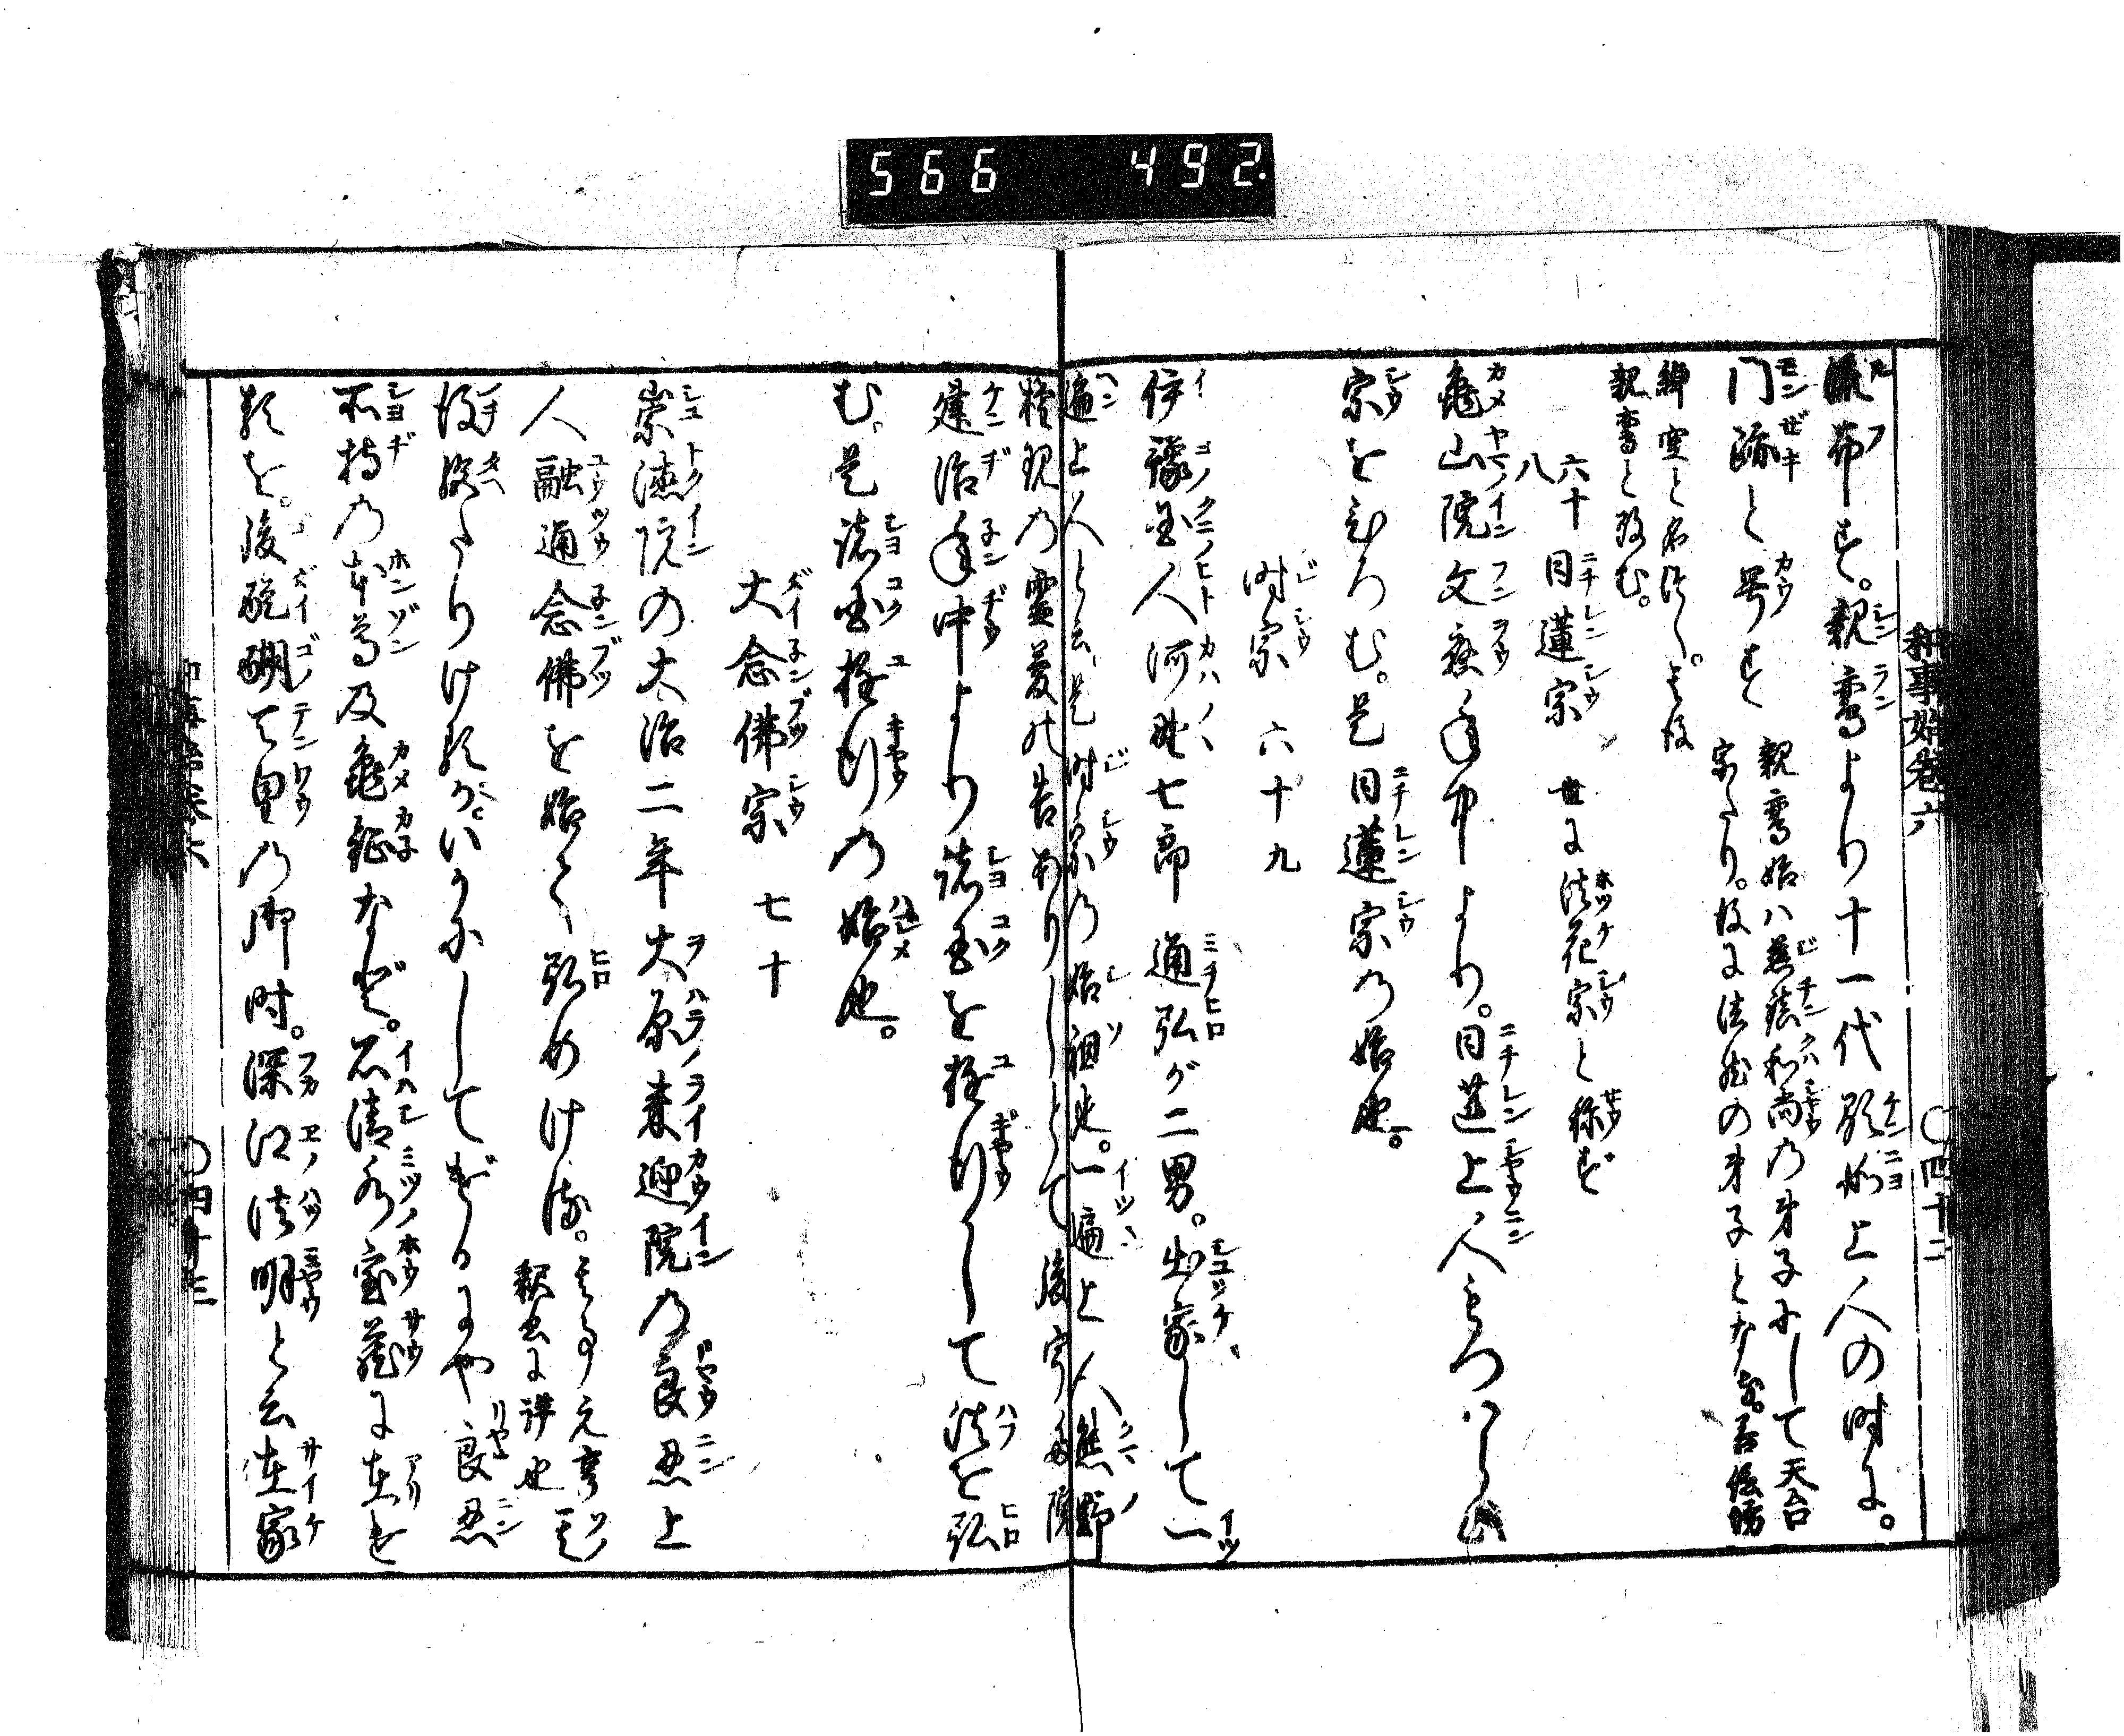 566 492.
和事始巻六 〇四十二
流布す。親鸞より十一代顕如上人の時に。
門跡と号す 親鸞始ハ慈鎮和尚の弟子にして天台
宗たり。後に法然の弟子となる。
綽空と名づく。其後
親鸞と改む。
日蓮宗 六十八 世に法花宗と称す
亀山院文應年中より。日蓮上人
宗をひろむ。是日蓮宗の始也。
時宗 六十九
伊豫国人河野七郎通弘が二男。出家して一
遍上人と云、是時宗の始祖也。一遍上人熊野
権現の霊夢の告ありしとて後宇多院
建治年中より諸国を遊行して法を弘
む。是諸国遊行の始也。
大念佛宗 七十
崇徳院の大治二年大原来迎院の良忍上
人融通念佛を始て弘めける。其事元亨
釈書に詳也 其
後絶たりけるが。いかにしてばかりにや良忍
所持の本尊及亀鉦など。石清水の宝蔵に在
を。後醍醐天皇の御時。深江法明と云在家